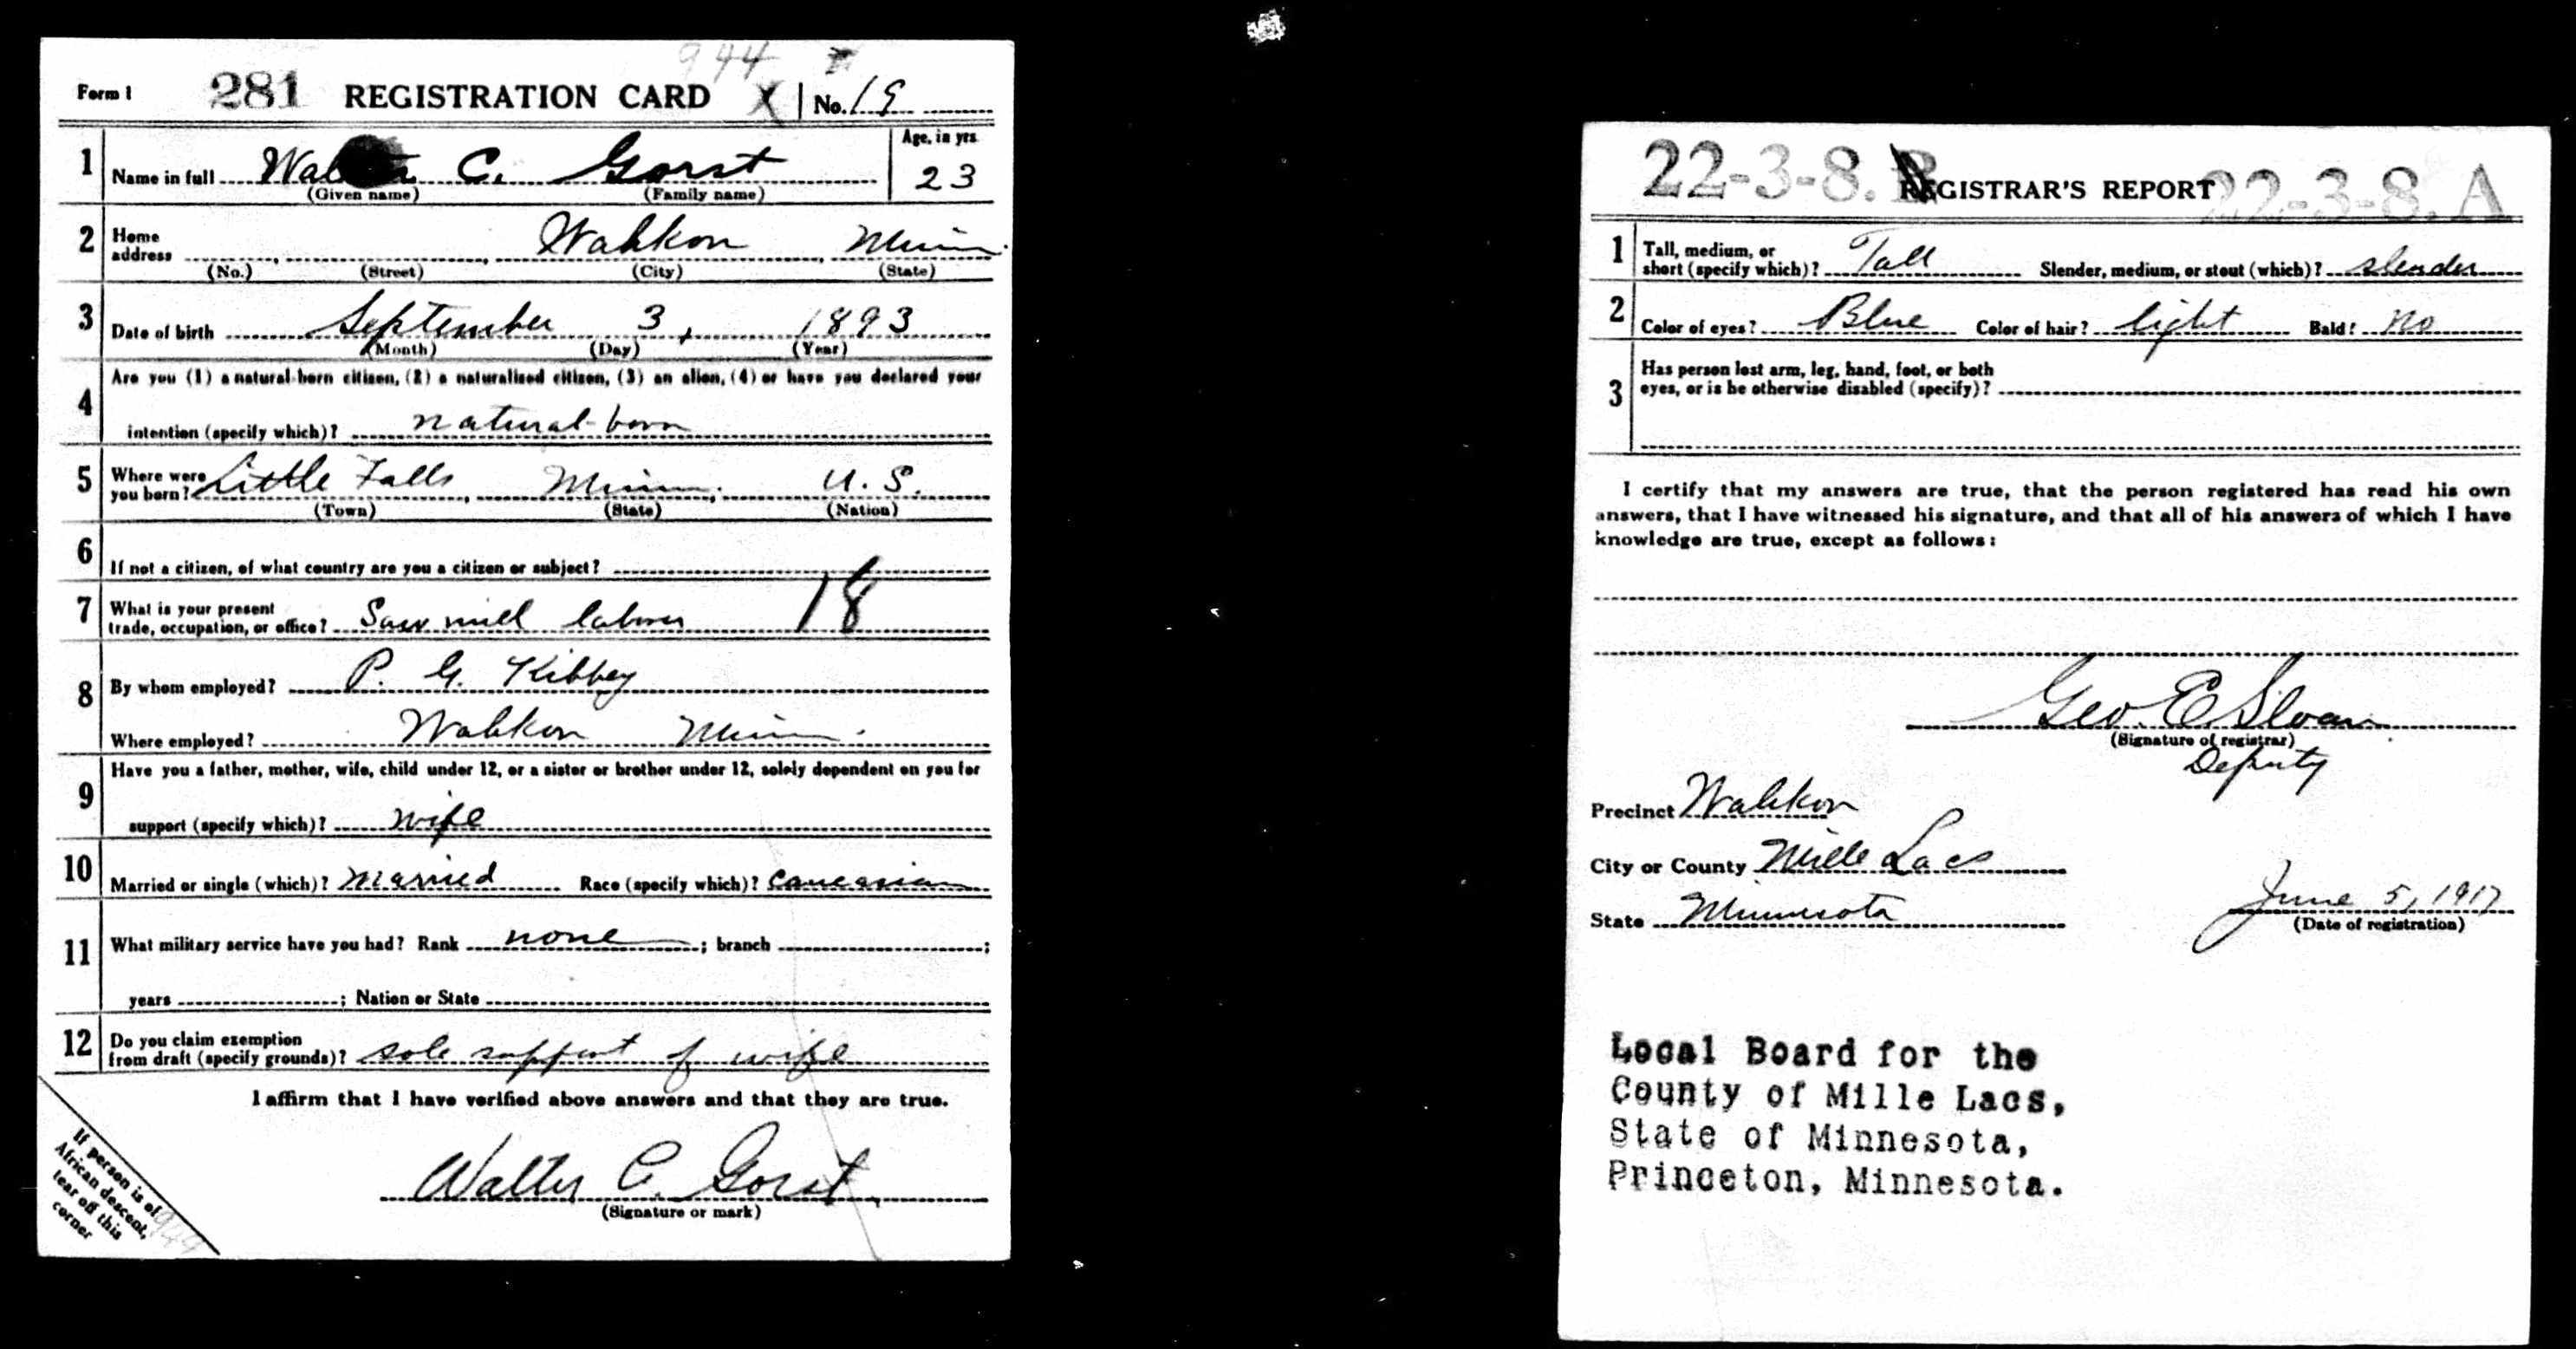 944
Form 1 281 REGISTRATION CARD X No. 19
1 Name in full Walter C. Gorst Age, in yrs. 23
(Given name) (Family name)
2 Home address Wahkon Minn.
(No.) (Street) (City) (State)
3 Date of birth September 3, 1893
(Month) (Day) (Year)
4 Are you (1) a natural-born citizen, (2) a naturalized citizen, (3) an alien, (4) or have you declared your
intention (specify which)? natural-born
5 Where were you born? Little Falls, Minn. U. S.
(Town) (State) (Nation)
6 If not a citizen, of what country are you a citizen or subject?
7 What is your present trade, occupation, or office? Saw mill laborer 18
8 By whom employed? P. G. Kibbey
Where employed? Wahkon Minn.
9 Have you a father, mother, wife, child under 12, or a sister or brother under 12, solely dependent on you for
support (specify which)? wife
10 Married or single (which)? married Race (specify which)? Caucasian
11 What military service have you had? Rank none ; branch ;
years ; Nation or State
12 Do you claim exemption from draft (specify grounds)? sole support of wife
I affirm that I have verified above answers and that they are true.
Walter C. Gorst
(Signature or mark)
If person is of
African descent,
tear off this
corner
944
22-3-8. REGISTRAR'S REPORT 22-3-8. A
1 Tall, medium, or short (specify which)? Tall Slender, medium, or stout (which)? slender
2 Color of eyes? Blue Color of hair? light Bald? No
3 Has person lost arm, leg, hand, foot, or both
eyes, or is he otherwise disabled (specify)?
I certify that my answers are true, that the person registered has read his own
answers, that I have witnessed his signature, and that all of his answers of which I have
knowledge are true, except as follows:
Geo. E. Sloan
(Signature of registrar)
Deputy
Precinct Wahkon
City or County Mille Lacs
State Minnesota
June 5, 1917
(Date of registration)
Local Board for the
County of Mille Lacs,
State of Minnesota,
Princeton, Minnesota.